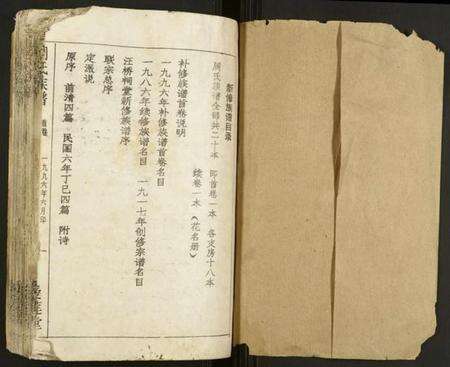 新修族谱目录
周氏族谱全部共二十本 即首卷一本 各支房十八本
续卷一本(花名册)
补修族谱首卷说明
一九九六年补修族谱首卷名目
一九八六年续修族谱名目 一九一七年创修宗谱名目
汪桥祠堂新修族谱序
联宗总序
定派说
原序 前清四篇 民国六年丁巳四篇 附诗
周氏族谱 首卷 一九九六年六月